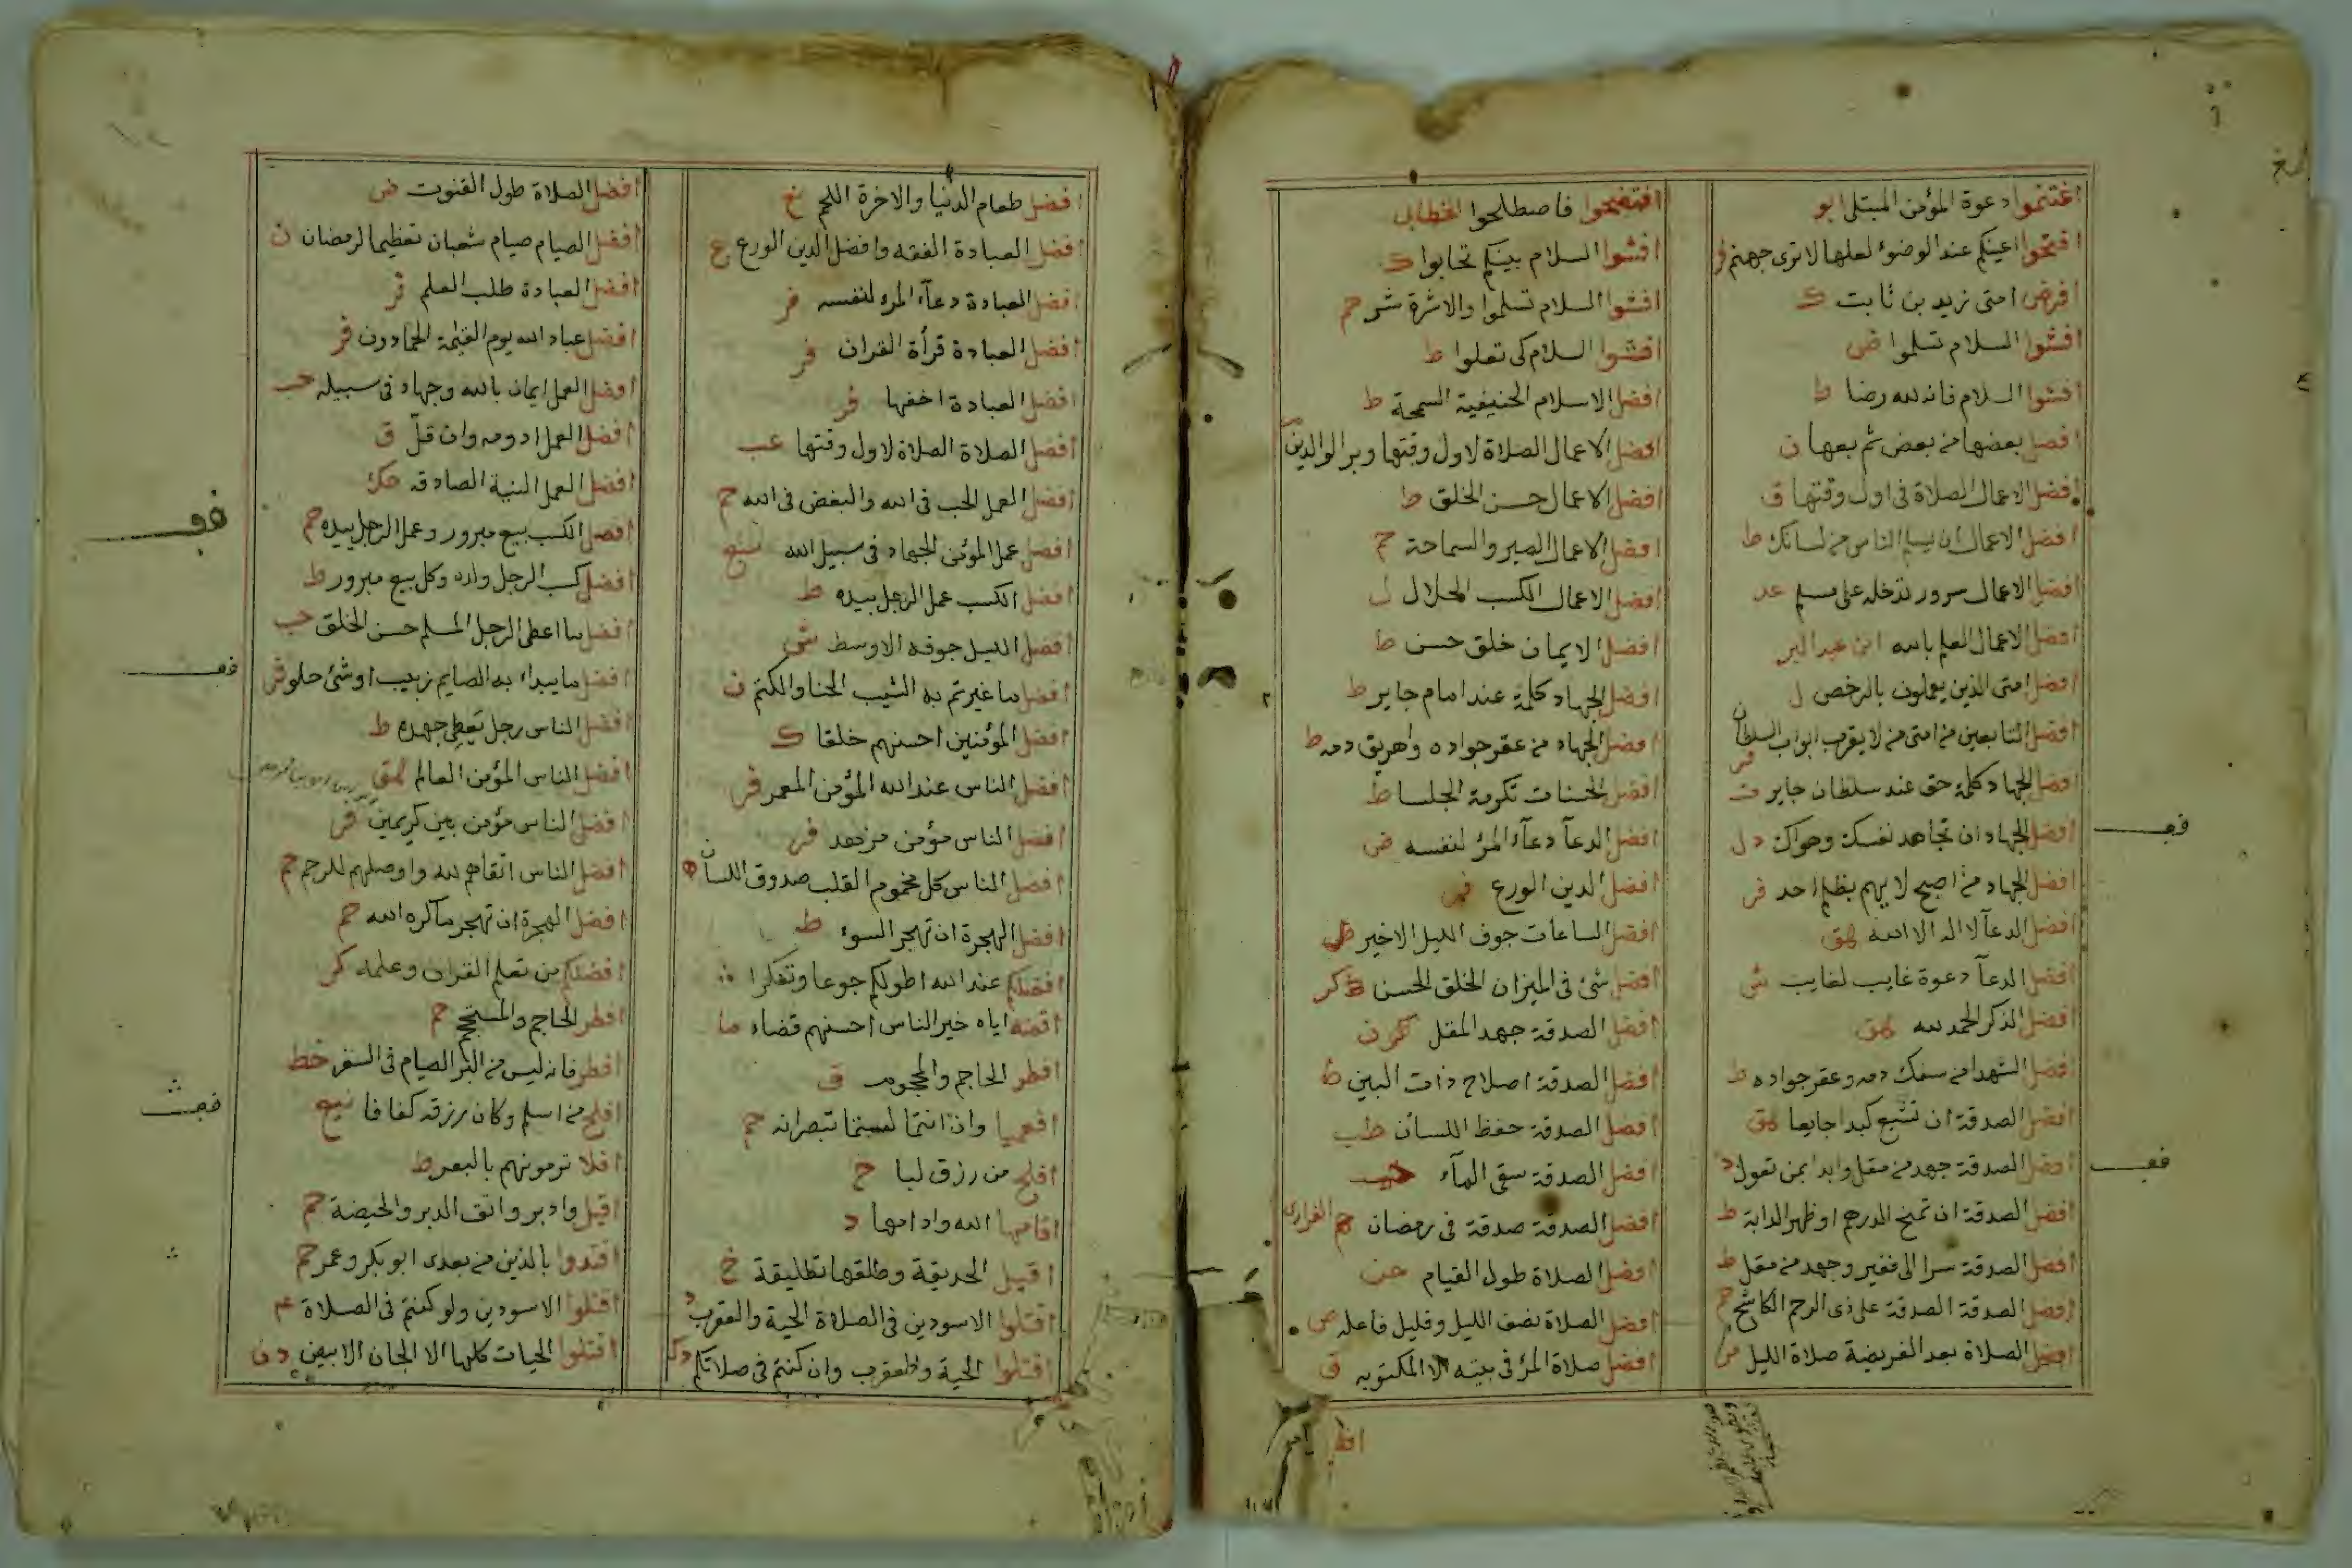 اغتنموا دعوة المؤمن المبتلى ابو
افتحوا اعينكم عند الوضوء لعلها لا ترى جهنم فر
افرض امتى زيد بن ثابت ك
افشوا السلام تسلموا ض
افشوا السلام فانه لله رضا ط
افصل بعضها من بعض ثم بعها ن
افضل الاعمال الصلاة فى اول وقتها ق
افضل الاعمال ان يسلم الناس من لسانك ط
افضل الاعمال سرور تدخله على مسلم عد
افضل الاعمال العلم بالله ابن عبد البر
افضل امتى الذين يعملون بالرخص ل
افضل التابعين من امتى من لا يقرب ابواب السلطان فر
افضل الجهاد كلمة حق عند سلطان جاير ت
افضل الجهاد ان تجاهد نفسك وهواك د ل
افضل الجهاد من اصبح لا يهم بظلم احد فر
افضل الدعآ لا اله الا الله هق
افضل الدعآ دعوة غايب لغايب ش
افضل الذكر الحمد لله هق
افضل الشهدا من سفك دمه وعقر جواده ط
افضل الصدقة ان تشبع كبدا جايعا هق
افضل الصدقة جهد من مقل وابدا بمن تعول د
افضل الصدقة ان تمنح الدرهم او ظهر الدابة ط
افضل الصدقة سرا الى فقير وجهد من مقل ط
افضل الصدقة الصدقة على ذى الرحم الكاشح حم
افضل الصلاة بعد الفريضة صلاة الليل
افتضحوا فاصطلحوا الخطابى
افشوا السلام بينكم تحابوا ك
افشوا السلام تسلموا والاشرة شر حم
افشوا السلام كى تعلوا ط
افضل الاسلام الحنيفية السمحة ط
افضل الاعمال الصلاة لاول وقتها وبر الوالدين
افضل الاعمال حسن الخلق ط
افضل الاعمال الصبر والسماحة حم
افضل الاعمال الكسب الحلال ل
افضل الايمان خلق حسن ط
افضل الجهاد كلمة عند امام جاير ط
افضل الجهاد من عقر جواده واهريق دمه ط
افضل الحسنات تكرمة الجلسا ط
افضل الدعآ دعآء المرء لنفسه ض
افضل الدين الورع فر
افضل الساعات جوف الليل الاخير ط
افضل شئ فى الميزان الخلق الحسن كر
افضل الصدقة جهد المقل كر ن
افضل الصدقة اصلاح ذات البين ط
افضل الصدقة حفظ اللسان طب
افضل الصدقة سقى المآء حب
افضل الصدقة صدقة فى رمضان
افضل الصلاة طول القيام حن
افضل الصلاة نصف الليل وقليل فاعله ض
افضل صلاة المرء فى بيته الا المكتوبه ق
افضل
افضل طعام الدنيا والاخرة اللحم خ
افضل العبادة الفقه وافضل الدين الورع ع
افضل العبادة دعآء المرء لنفسه فر
افضل العبادة قرأة القران فر
افضل العبادة اخفها فر
افضل الصلاة الصلاة لاول وقتها عب
افضل العمل الحب فى الله والبغض فى الله حم
افضل عمل المؤمن الجهاد فى سبيل الله
افضل الكسب عمل الرجل بيده ط
افضل الليل جوفه الاوسط ش
افضل ما غيرتم به الشيب الحنا والكتم ن
افضل المؤمنين احسنهم خلقا ك
افضل الناس عند الله المؤمن المعمر فر
افضل الناس مؤمن مزهد فر
افضل الناس كل مخموم القلب صدوق اللسان ه
افضل الهجرة ان تهجر السوء ط
افضلكم عند الله اطولكم جوعا وتفكرا
اقضه اياه خير الناس احسنهم قضاء ما
افطر الحاجم والمحجوم ق
افعميا وان انتما لستما تبصرانه حم
افلح من رزق لبا خ
اقامها الله وادامها د
اقبل الحديقة وطلقها تطليقة خ
اقتلوا الاسودين فى الصلاة الحية والعقرب د
اقتلوا الحية والعقرب وان كنتم فى صلاتكم
افضل الصلاة طول القنوت ض
افضل الصيام صيام شعبان تعظيما لرمضان ن
افضل العبادة طلب العلم فر
افضل عباد الله يوم القيمة الحمادون فر
افضل العمل ايمان بالله وجهاد فى سبيله حب
افضل العمل ادومه وان قلّ ق
افضل العمل النية الصادقه حك
افضل الكسب بيع مبرور وعمل الرجل بيده حم
افضل كسب الرجل ولده وكل بيع مبرور ط
افضل ما اعطى الرجل المسلم حسن الخلق حب
افضل ما يبداء به الصايم زبيب او شئ حلو فر
افضل الناس رجل يعطى جهده ط
افضل الناس المؤمن العالم هق
افضل الناس مؤمن بين كريمين فر
افضل الناس اتقاهم لله واوصلهم للرحم حم
افضل الهجرة ان تهجر ما كره الله حم
افضلكم من تعلم القران وعلمه كر
افطر الحاجم والمستحجم حم
افطر فانه ليس من البر الصيام فى السفر خط
افلح من اسلم وكان رزقه كفافا
افلا ترمونهم بالبعر ط
اقبل وادبر واتق الدبر والحيضة حم
اقتدوا بالذين من بعدى ابو بكر وعمر حم
اقتلوا الاسودين ولو كنتم فى الصلاة عم
اقتلوا الحيات كلها الا الجان الابيض د ن